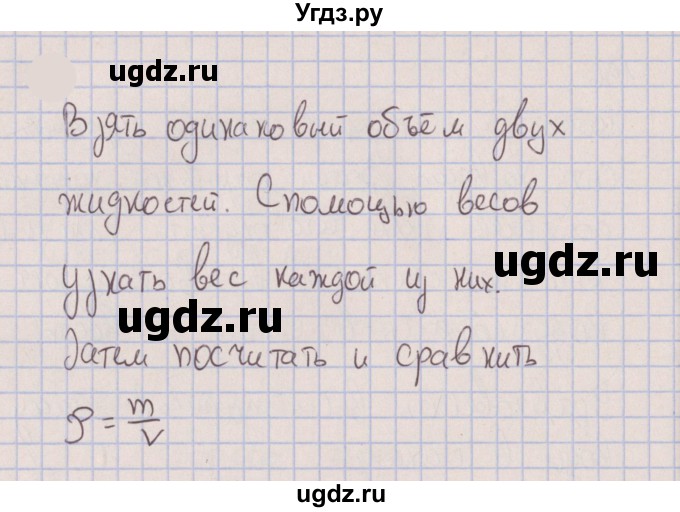 Угдз.ру
ugdz.ru
Взять одинаковый объём двух
жидкостей. С помощью весов
ugdz.ru
узнать вес каждой из них.
ugdz.ru
Затем посчитать и сравнить
ρ = m/V
ugdz.ru